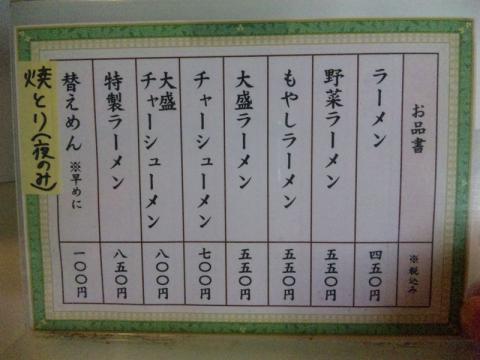 お品書 ※税込み
ラーメン 四五〇円
野菜ラーメン 五五〇円
もやしラーメン 五五〇円
大盛ラーメン 五五〇円
チャーシューメン 七〇〇円
大盛
チャーシューメン 八〇〇円
特製ラーメン 八五〇円
替えめん ※早めに 一〇〇円
焼とり(夜のみ)